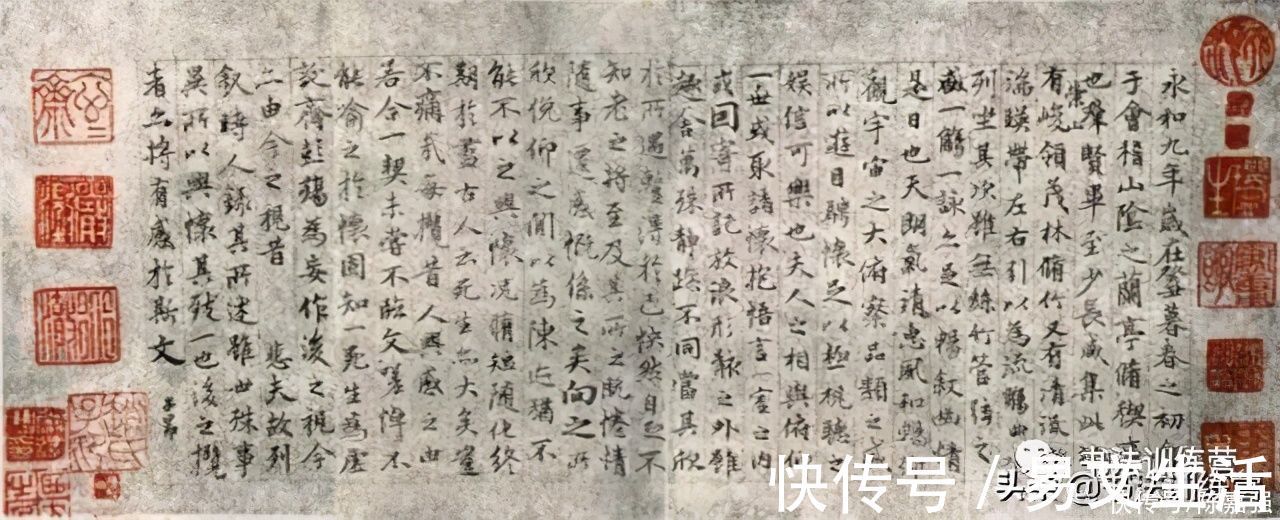 永和九年歲在癸丑暮春之初
于會稽山陰之蘭亭脩稧事
也羣賢畢至少長咸集此
有崇山峻領茂林脩竹又有清流
湍暎帶左右引以為流觴曲
列坐其次雖無絲竹管弦之
盛一觴一詠亦足以暢敘幽情
是日也天朗氣清惠風和暢
觀宇宙之大俯察品類之
所以遊目騁懷足以極視聽之
娛信可樂也夫人之相與俯仰
一世或取諸懷抱悟言一室之內
或因寄所託放浪形骸之外雖
趣舍萬殊靜躁不同當其欣
於所遇蹔得於己快然自足不
知老之將至及其所之既惓情
隨事遷感慨係之矣向之所
欣俛仰之閒以為陳迹猶不
能不以之興懷況脩短隨化終
期於盡古人云死生亦大矣豈
不痛哉每攬昔人興感之由
若合一契未嘗不臨文嗟悼不
能喻之於懷固知一死生為虛
誕齊彭殤為妄作後之視今
亦由今之視昔 悲夫故列
敘時人錄其所述雖世殊事
異所以興懷其致一也後之攬
者亦將有感於斯文
子昂
快传号 / 易艾生活
头条@
快传号/陈嘉强